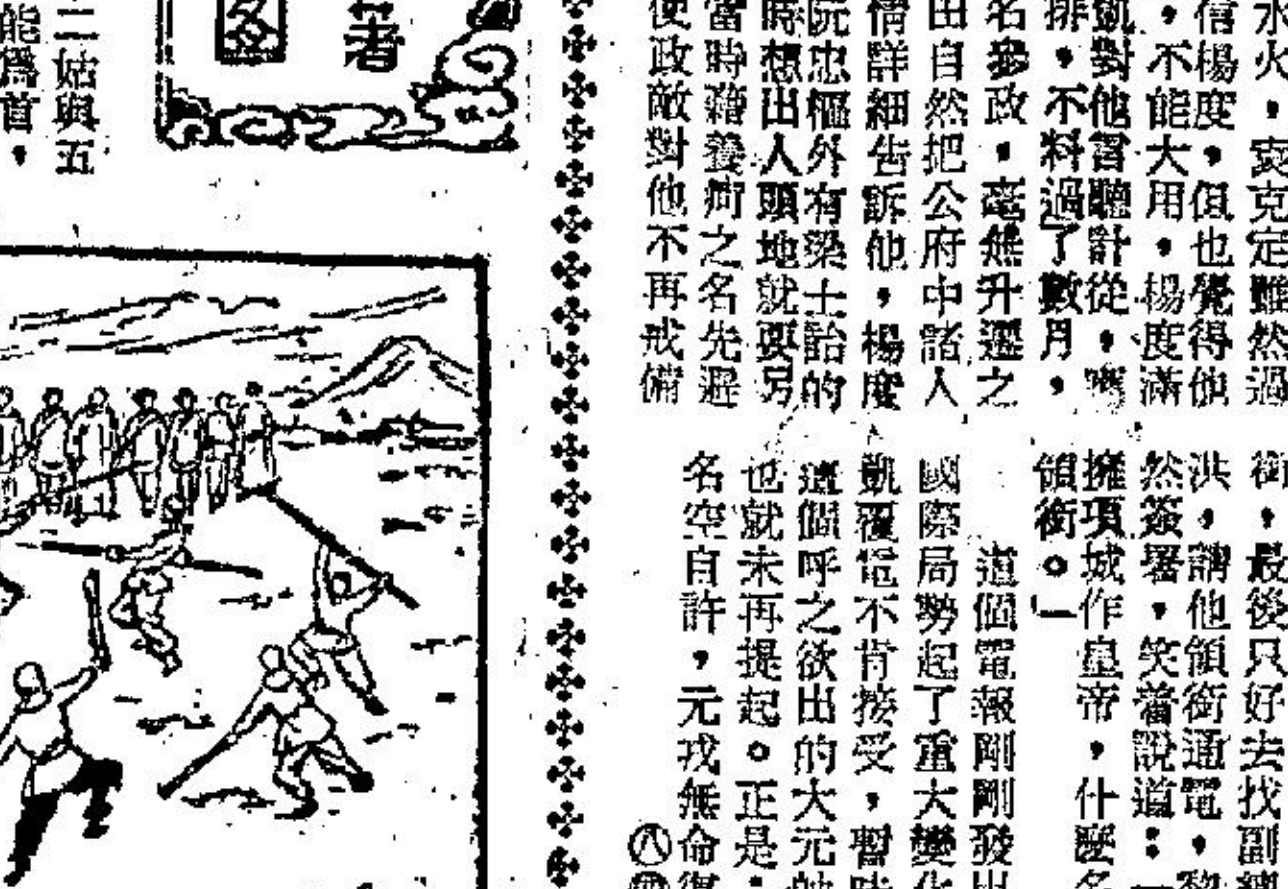 水火，袁克定雖然過
信楊度，但也覺得他
，不能大用，楊度滿
凱對他言聽計從，
排，不料過了數月，
名參政，毫無升遷之
田自然把公府中諸人
情詳細告訴他，楊度
阮忠樞外有梁士詒的
時想出人頭地就要另
當時藉養疴之名先避
使政敵對他不再戒備
銜，最後只好去找副總
洪，請他領銜通電，
然簽署，笑着說道：「
擁項城作皇帝，什麼名
領銜。」
這個電報剛剛發出
國際局勢起了重大變化
凱覆電不肯接受，暫時
這個呼之欲出的大元帥
也就未再提起。正是：
名空自許，元戎無命復
㊇
著
圖
二姑與五
能爲首，